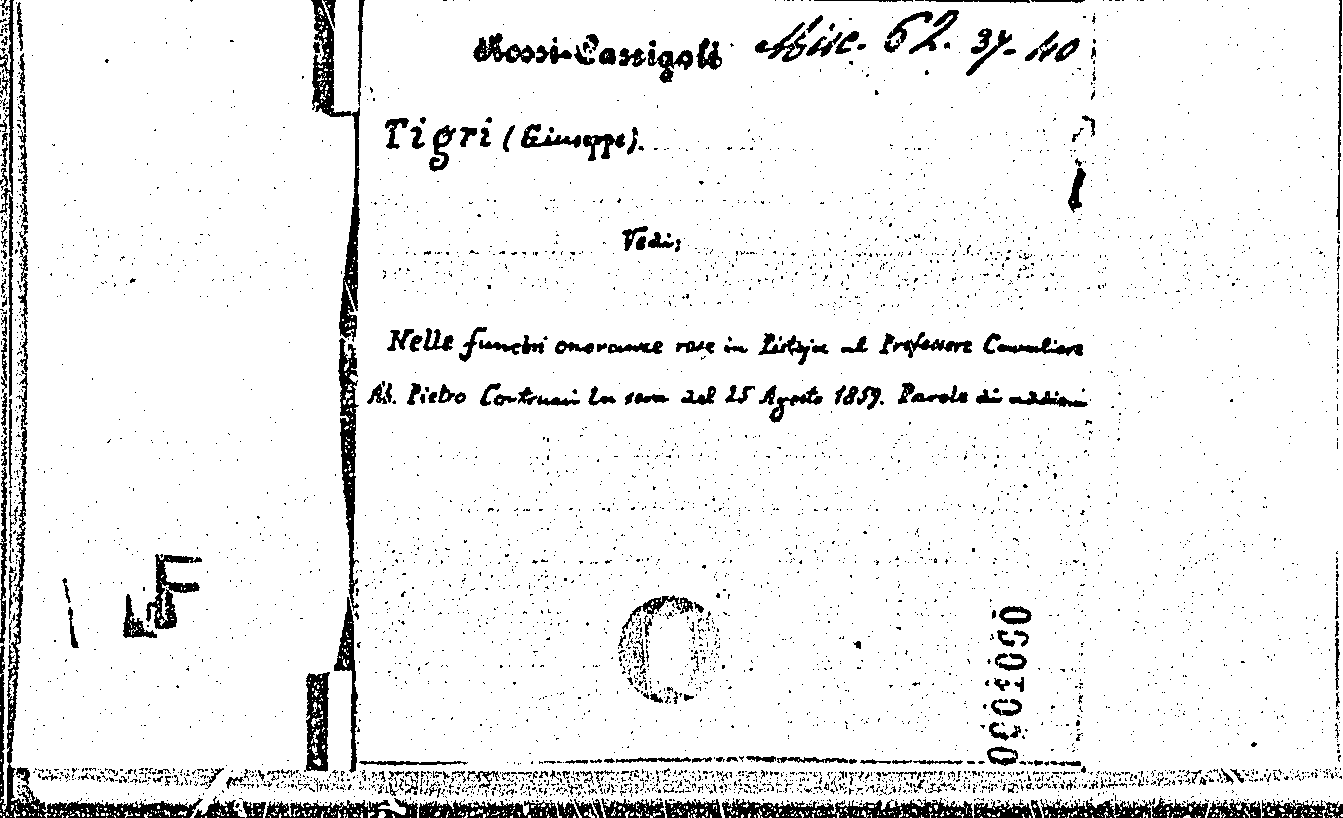 Rossi-Cassigoli Misc. 62. 37-40
Tigri (Giuseppe).
Vedi;
Nelle funebri onoranze rese in Pistoja al Professore Cavaliere
Ab. Pietro Contrucci la sera del 25 Agosto 1859. Parole di
0001000